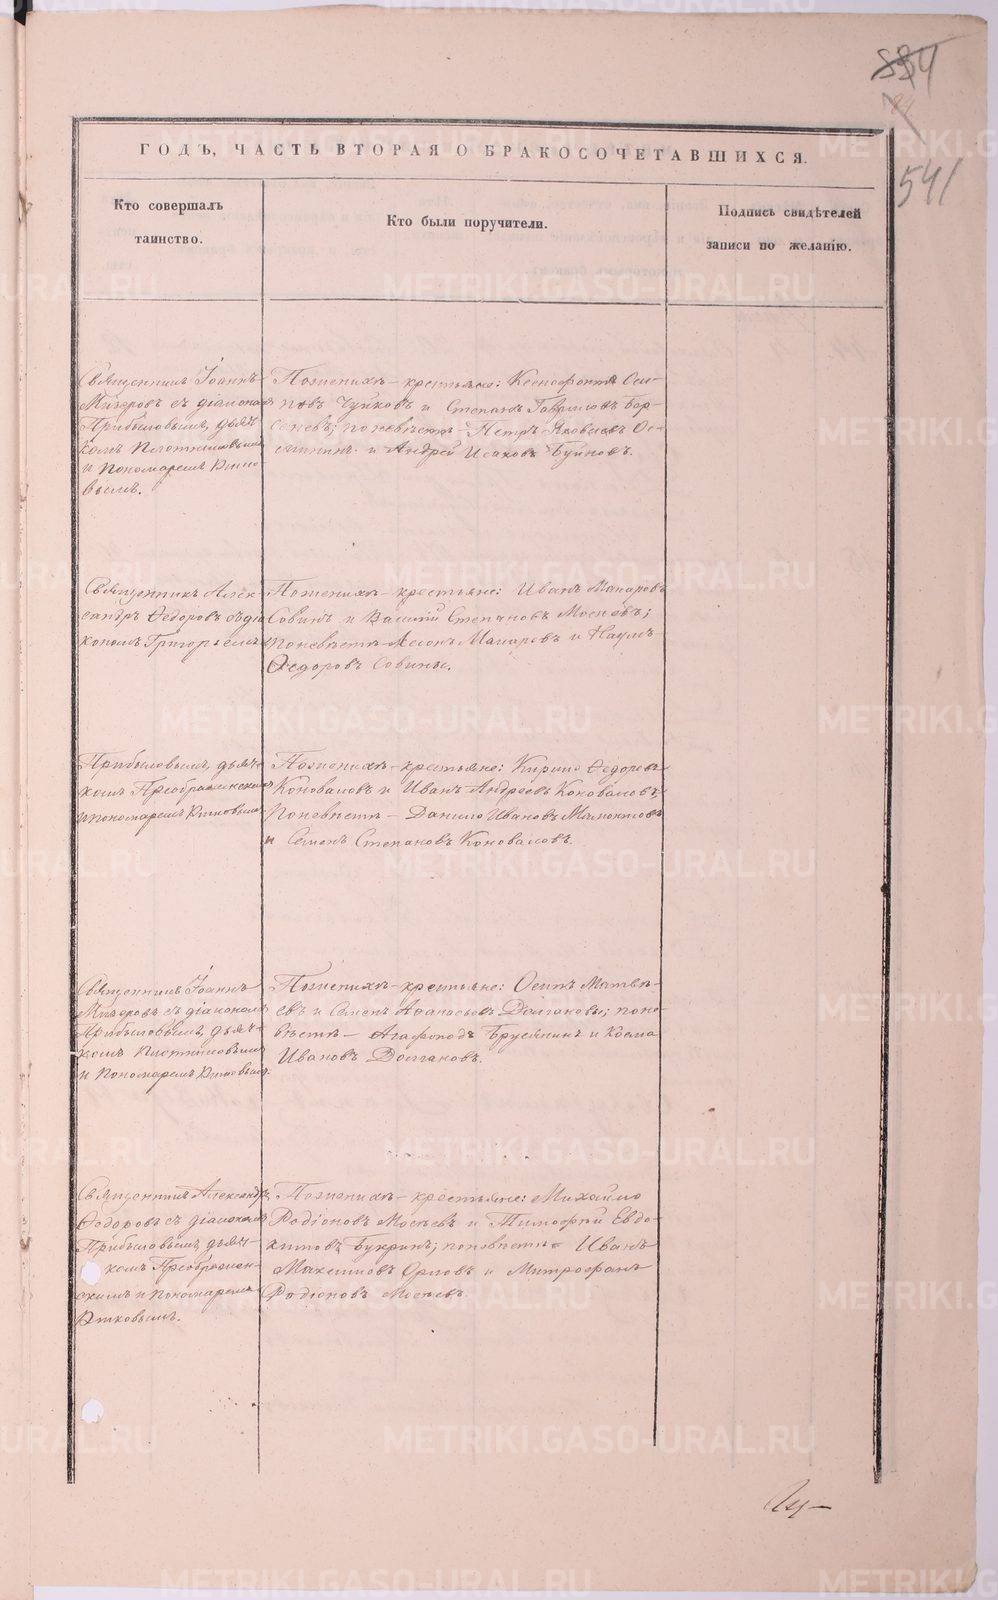 884
84
541
ГОДЪ, ЧАСТЬ ВТОРАЯ О БРАКОСОЧЕТАВШИХСЯ.
Кто совершалъ
таинство.
Кто были поручители.
Подпись свидѣтелей
записи по желанію.
Священникъ Іоаннъ
Мизеровъ съ діакономъ
Прибыловымъ, дьяч-
комъ Плотниковымъ
и пономаремъ
вымъ.
Поженихѣ – крестьяне: Ксенофонтъ Оси-
повъ Чуйковъ и Степанъ Гавриловъ Бор-
сеневъ; поневѣстѣ – Петръ Яковлевъ
и Андрей Исаковъ Буйновъ.
Священникъ Алек-
сандръ Ѳедоровъ съ діа-
кономъ Григорьемъ
Поженихѣ – крестьяне: Иванъ Макаровъ
Совинъ и Василій Степановъ Мосѣевъ;
поневѣстѣ – Макаровъ и Наумъ
Ѳедоровъ Совины.
Прибыловымъ, дьяч-
комъ Преображенскимъ
и пономаремъ
Поженихѣ – крестьяне: Кирило Ѳедоровъ
Коноваловъ и Иванъ Андреевъ Коноваловъ;
Поневѣстѣ – Данило Ивановъ
и Семенъ Степановъ Коноваловъ.
Священникъ Іоаннъ
Мизеровъ съ діакономъ
Прибыловымъ, дьяч-
комъ Плотниковымъ
и пономаремъ
Поженихѣ – крестьяне: Осипъ Матвѣ-
евъ и Семенъ Аѳанасьевъ Долгановы; поне-
вѣстѣ – Агафоподъ Брусянинъ и Косма
Ивановъ Долгановъ.
Священникъ Александръ
Ѳедоровъ съ діакономъ
Прибыловымъ, дьяч-
комъ Преображен-
скимъ и пономаремъ
Поженихѣ – крестьяне: Михайло
Родіоновъ Мосѣевъ и Тимофѣй Евдо-
кимовъ Букринъ; поневѣстѣ Иванъ
Максимовъ Орловъ и Митрофанъ
Родіоновъ Мосѣевъ.
METRIKI.GASO-URAL.RU